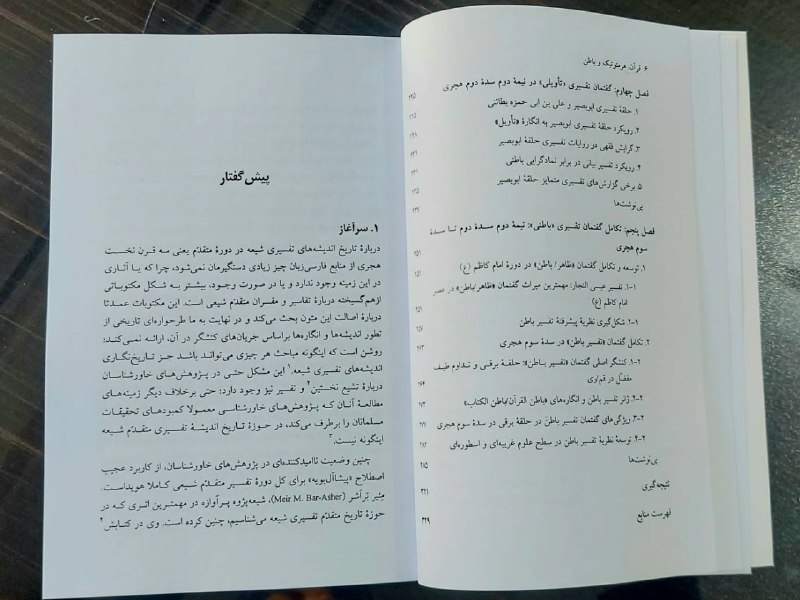 ۶ قرآن، هرمنوتیک و باطن
فصل چهارم: گفتمان تفسیری «تأویلی» در نیمهٔ دوم سدهٔ دوم هجری
۱. حلقهٔ تفسیری ابوبصیر و علی بن ابی حمزه بطائنی
۲. رویکرد حلقهٔ تفسیری ابوبصیر به انگارهٔ «تأویل»
۳. گرایش فقهی در روایات تفسیری حلقهٔ ابوبصیر
۴. رویکرد تفسیر بیانی در برابر نمادگرایی باطنی
۵. برخی گزارش‌های تفسیری متمایز حلقهٔ ابوبصیر
پی‌نوشت‌ها
فصل پنجم: تکامل گفتمان تفسیری «باطنی»: نیمهٔ دوم سدهٔ دوم تا سدهٔ
سوم هجری ۲۵۱
۱. توسعه و تکامل گفتمان «ظاهر/ باطن» در دورهٔ امام کاظم (ع) ۲۵۱
۱-۱. تفسیر عیسی النجار: مهمترین میراث گفتمان «ظاهر/باطن» در عصر
امام کاظم (ع) ۲۵۱
۲-۱. شکل‌گیری نظریهٔ پیشرفتهٔ تفسیر باطن
۲. تکامل گفتمان «تفسیر باطن» در سدهٔ سوم هجری ۲۶۳
۱-۲. کنشگر اصلی گفتمان «تفسیر باطن»: حلقهٔ برقی و تداوم طیف
مفضّل در قم/ری ۲۶۶
۲-۲. ژانر تفسیر باطن و انگاره‌های «باطن القرآن/باطن الکتاب» ۲۷۳
۳-۲. ویژگی‌های گفتمان تفسیر باطن در حلقهٔ برقی در سدهٔ سوم هجری ۲۷۷
۴-۲. توسعهٔ نظریهٔ تفسیر باطن در سطح علوم غریبه‌ای و اسطوره‌ای ۲۸۲
پی‌نوشت‌ها ۲۸۵
نتیجه‌گیری ۳۲۱
فهرست منابع ۳۲۹
پیش‌گفتار
۱. سرآغاز
دربارهٔ تاریخ اندیشه‌های تفسیری شیعه در دورهٔ متقدّم یعنی سه قرن نخست
هجری از منابع فارسی‌زبان چیز زیادی دستگیرمان نمی‌شود، چرا که یا آثاری
در این زمینه وجود ندارد و یا در صورت وجود، بیشتر به شکل مکتوباتی
ازهم‌گسیخته دربارهٔ تفاسیر و مفسران متقدّم شیعی است. این مکتوبات عمدتا
دربارهٔ اصالت این متون بحث می‌کند و در نهایت به ما طرحواره‌ای تاریخی از
تطور اندیشه‌ها و انگاره‌ها براساس جریان‌های کنشگر در آن، ارائه نمی‌کنند؛
روشن است که اینگونه مباحث هر چیزی می‌تواند باشد جـز تاریخ‌نگاری
اندیشه‌های تفسیری شیعه.۱ این مشکل حتی در پژوهش‌های خاورشناسان
دربارهٔ تشیع نخستین۲ و تفسیر نیز وجود دارد؛ حتی برخلاف دیگر زمینه‌های
مطالعهٔ آنـان که پـژوهش‌های خاورشناسی معمولا کمبودهای تحقیقات
مسلمانان را برطرف می‌کند، در حوزهٔ تاریخ اندیشهٔ تفسیری متقدّم شیعه
اینگونه نیست.۳
چنین وضعیت ناامیدکننده‌ای در پژوهش‌های خاورشناسان، از کاربرد عجیب
اصطلاح «پیشاآل‌بویه» برای کل دورهٔ تفسیر متقدّم شیعی کاملا هویداست.
مئیر بَرآشر (Meir M. Bar-Asher)، شیعه‌پژوه پرآوازه در مهمترین اثری که در
حوزهٔ تاریخ متقدّم تفسیری شیعه می‌شناسیم، چنین کرده است. وی در کتابش۴